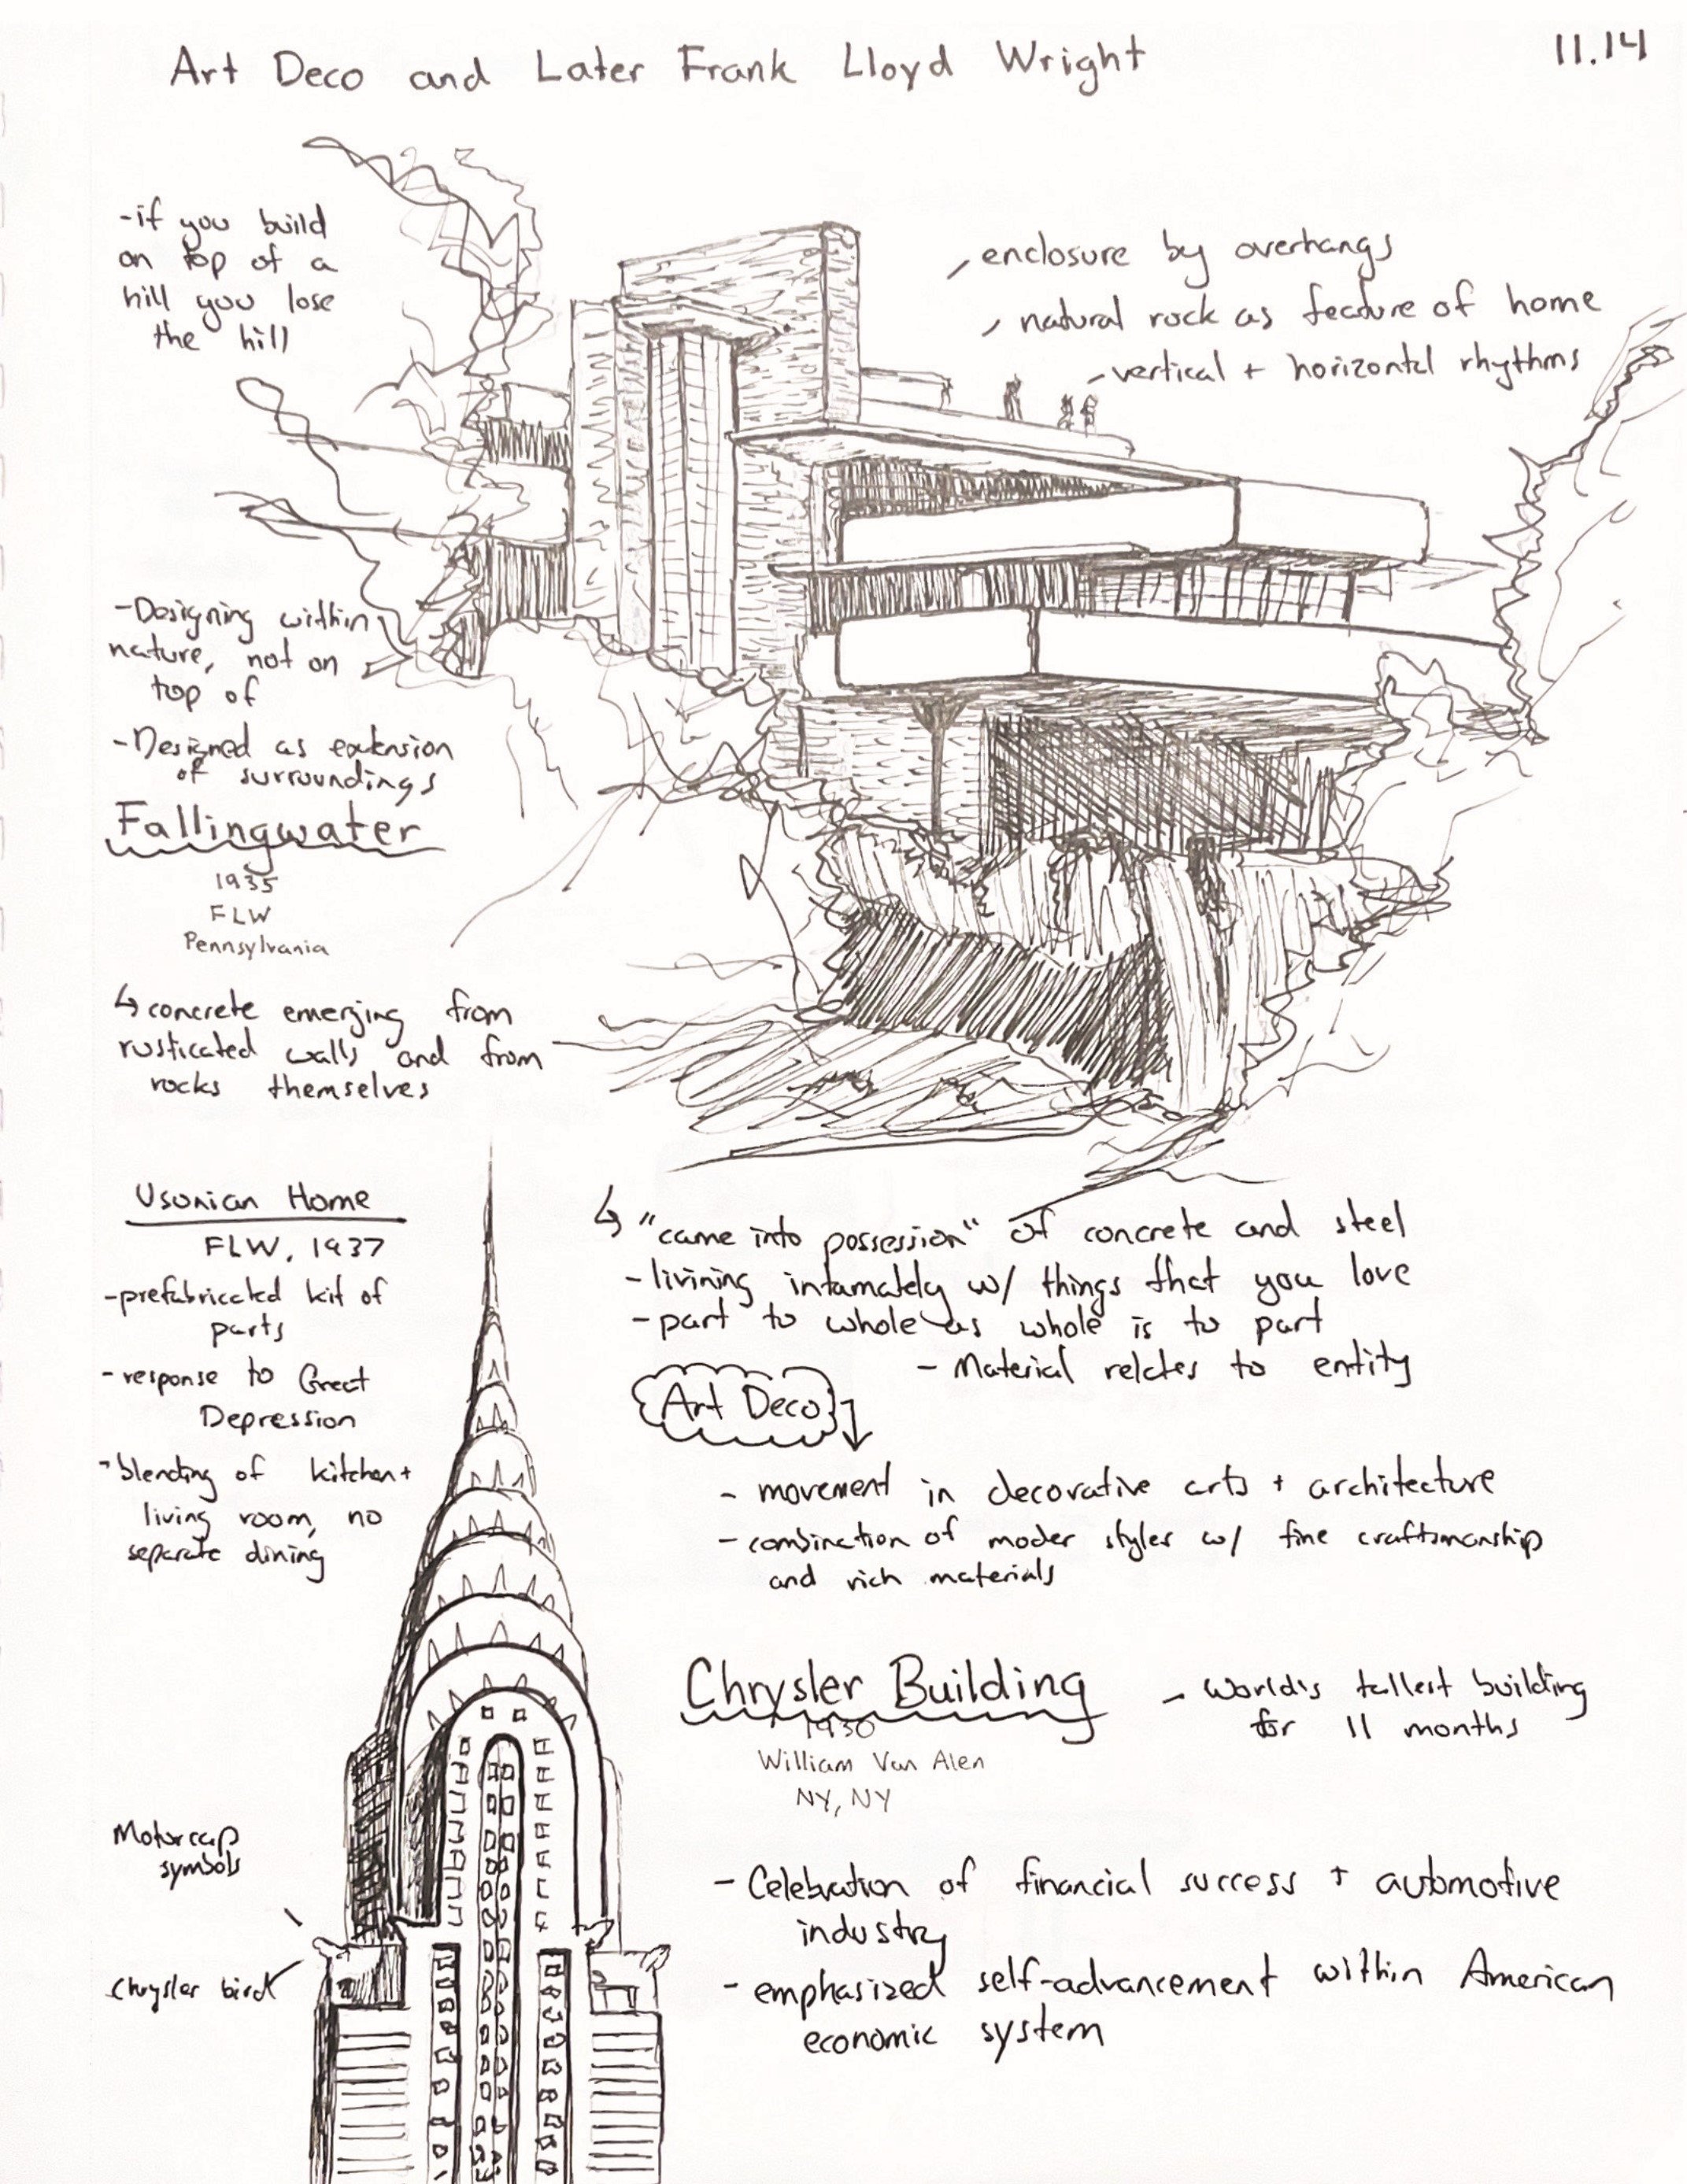 Art Deco and Later Frank Lloyd Wright
11.14
-if you build
on top of a
hill you lose
the hill
-enclosure by overhangs
-natural rock as feature of home
-vertical + horizontal rhythms
-Designing within
nature, not on
top of
-Designed as extension
of surroundings
Fallingwater
1935
FLW
Pennsylvania
↳ concrete emerging from
rusticated walls and from
rocks themselves
Usonian Home
FLW, 1937
-prefabricated kit of
parts
-response to Great
Depression
-blending of kitchen+
living room, no
separate dining
↳ "came into possession" of concrete and steel
-livining intamately w/ things that you love
-part to whole as whole is to part
-Material relates to entity
Art Deco
- movement in decorative arts + architecture
- combination of moder styles w/ fine craftsmanship
and rich materials
Chrysler Building
1930
William Van Alen
NY, NY
- World's tallest building
for 11 months
Motorcap
symbols
Chrysler bird
- Celebration of financial success + automotive
industry
- emphasized self-advancement within American
economic system